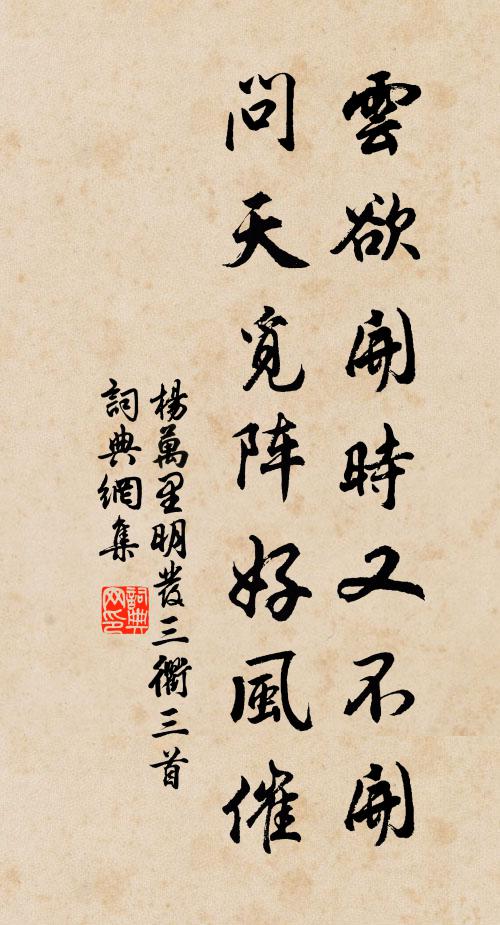 雲欲開時又不開
問天覓阵好風催
楊萬里明發三衢三首
詞典網集
詞典网印